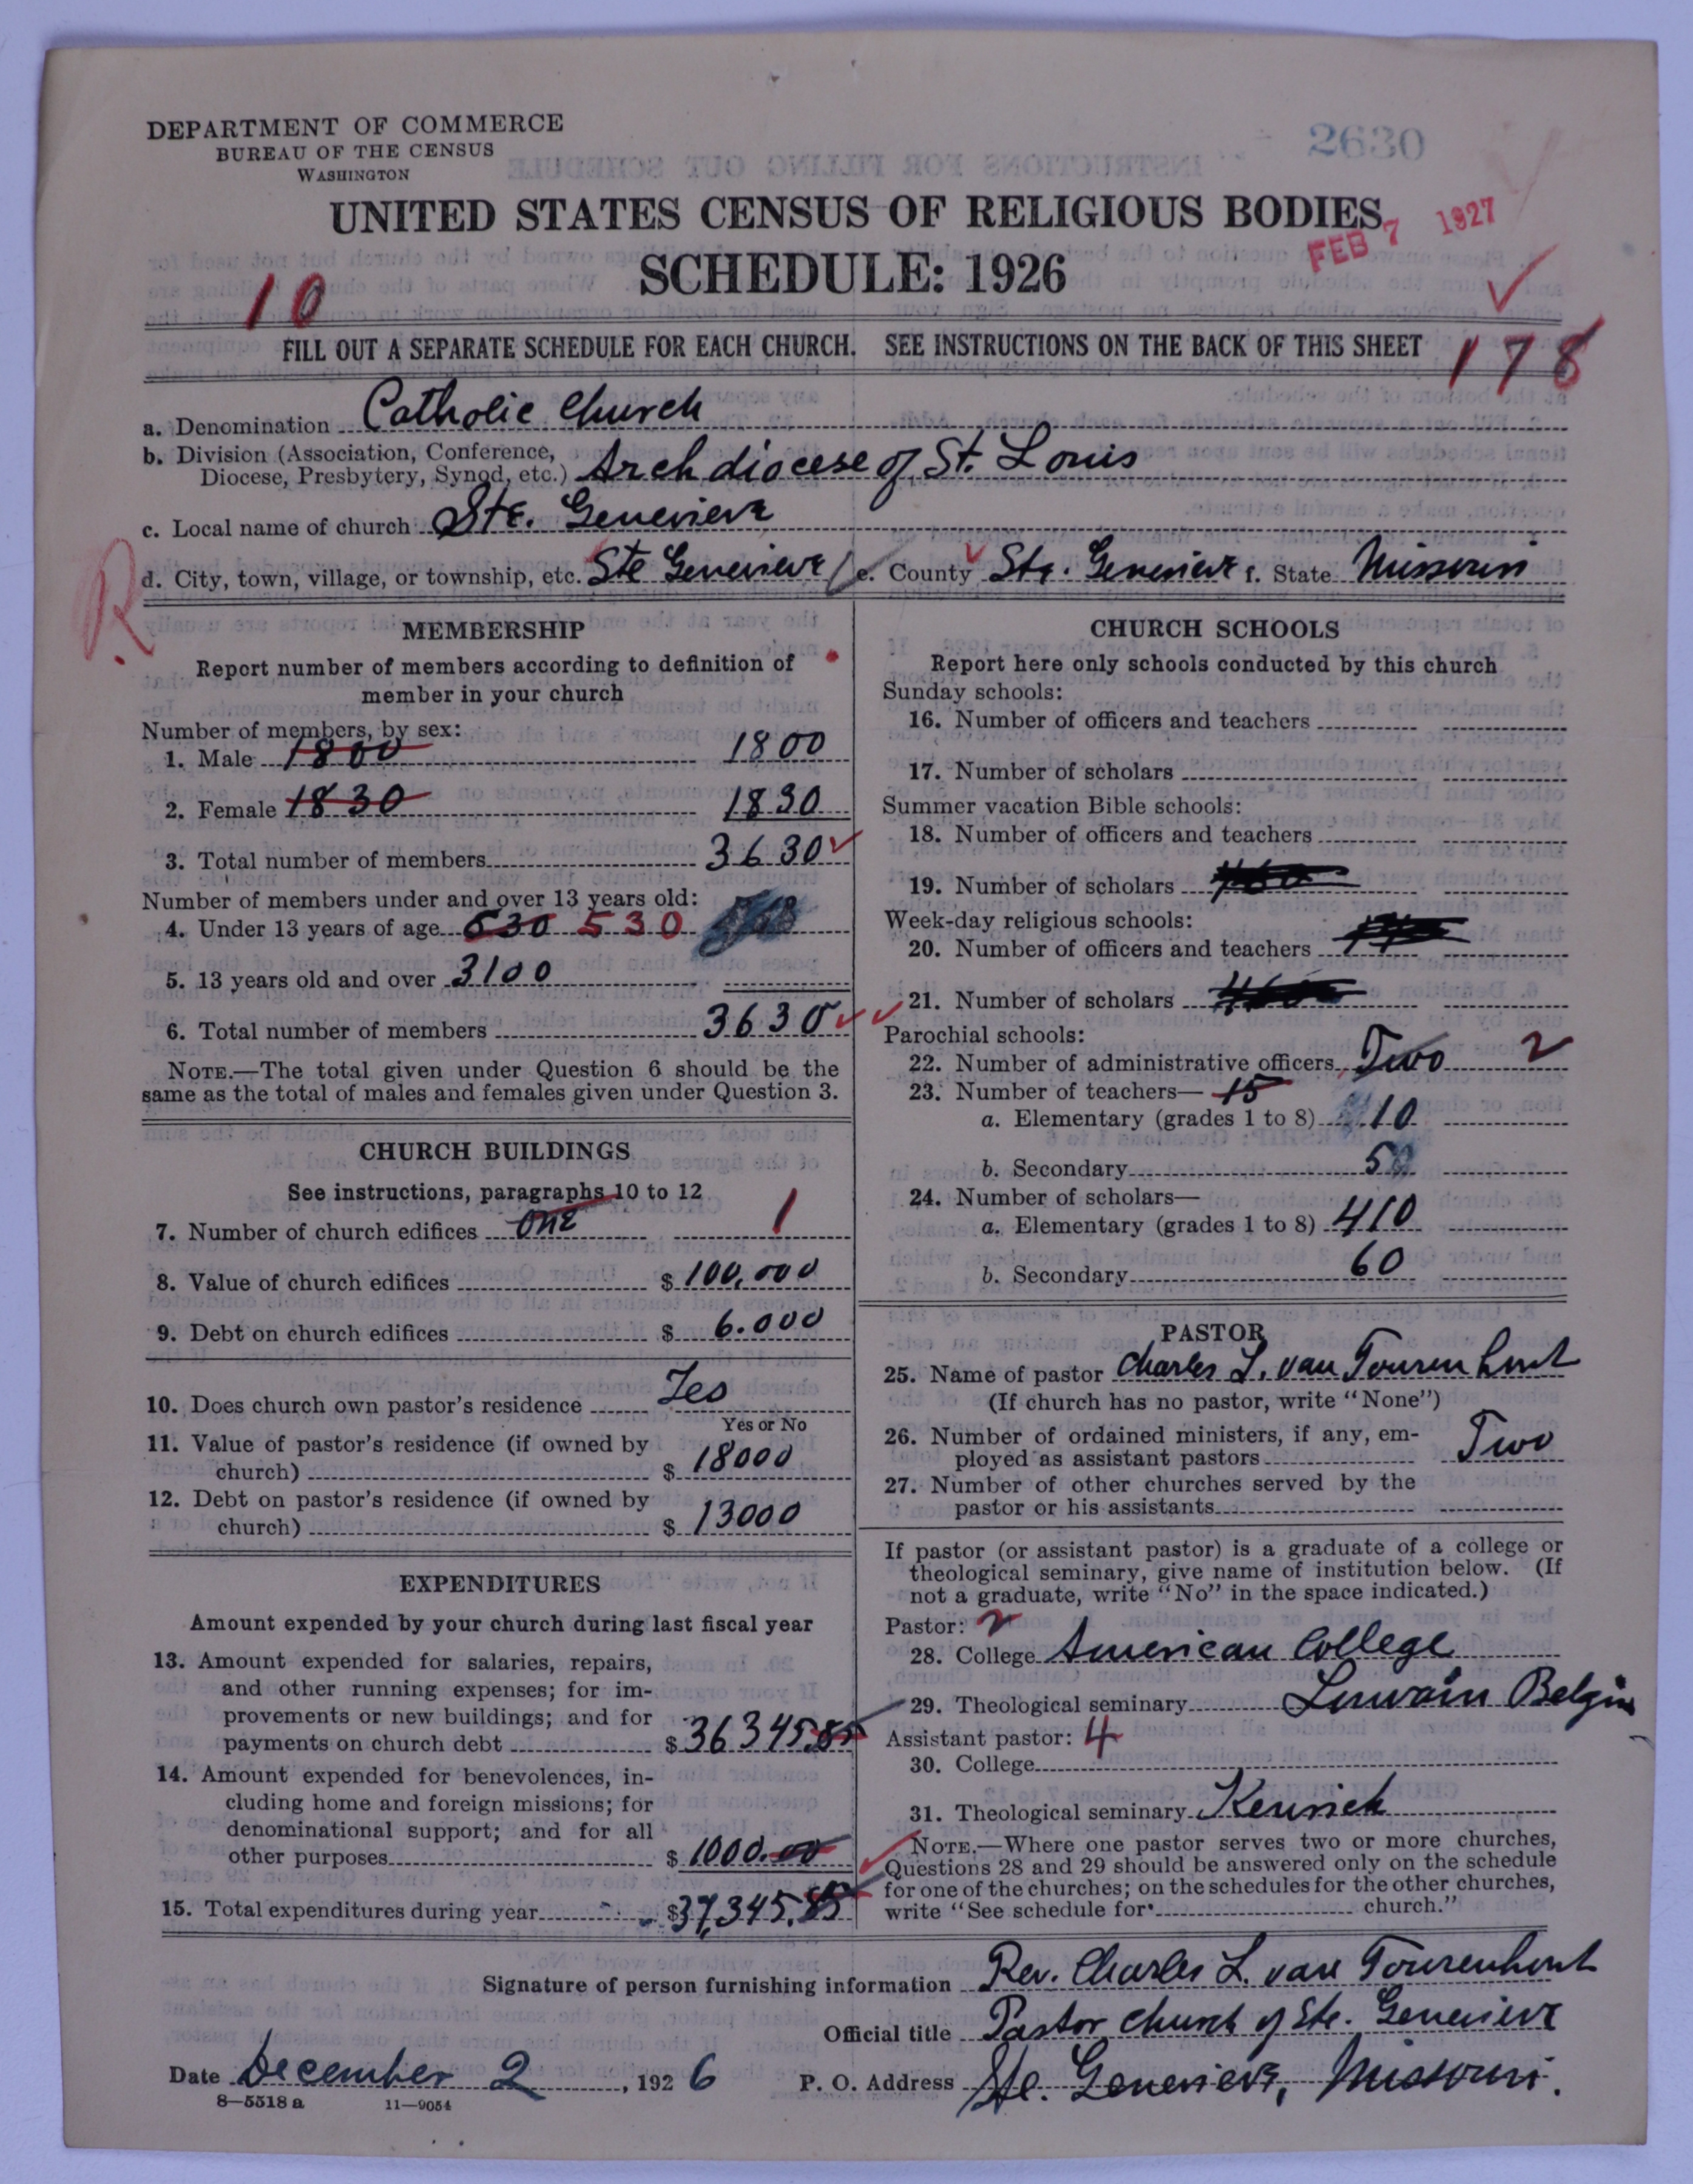 DEPARTMENT OF COMMERCE
BUREAU OF THE CENSUS
WASHINGTON
2630
UNITED STATES CENSUS OF RELIGIOUS BODIES
FEB 7 1927
SCHEDULE: 1926
10
FILL OUT A SEPARATE SCHEDULE FOR EACH CHURCH. SEE INSTRUCTIONS ON THE BACK OF THIS SHEET
178
a. Denomination Catholic Church
b. Division (Association, Conference,
Diocese, Presbytery, Synod, etc.) Archdiocese of St. Louis
c. Local name of church Ste. Genevieve
d. City, town, village, or township, etc. Ste Genevieve e. County Ste. Genevieve f. State Missouri
R
MEMBERSHIP
Report number of members according to definition of
member in your church
Number of members, by sex:
1. Male 1800 1800
2. Female 1830 1830
3. Total number of members 3630
Number of members under and over 13 years old:
4. Under 13 years of age 530 530
5. 13 years old and over 3100
6. Total number of members 3630
NOTE.—The total given under Question 6 should be the
same as the total of males and females given under Question 3.
CHURCH BUILDINGS
See instructions, paragraphs 10 to 12
7. Number of church edifices one 1
8. Value of church edifices $ 100,000
9. Debt on church edifices $ 6.000
10. Does church own pastor's residence Yes
Yes or No
11. Value of pastor's residence (if owned by
church) $ 18000
12. Debt on pastor's residence (if owned by
church) $ 13000
EXPENDITURES
Amount expended by your church during last fiscal year
13. Amount expended for salaries, repairs,
and other running expenses; for im-
provements or new buildings; and for
payments on church debt $ 36345.85
14. Amount expended for benevolences, in-
cluding home and foreign missions; for
denominational support; and for all
other purposes $ 1000.00
15. Total expenditures during year $37,345.85
CHURCH SCHOOLS
Report here only schools conducted by this church
Sunday schools:
16. Number of officers and teachers
17. Number of scholars
Summer vacation Bible schools:
18. Number of officers and teachers
19. Number of scholars
Week-day religious schools:
20. Number of officers and teachers
21. Number of scholars
Parochial schools:
22. Number of administrative officers Two 2
23. Number of teachers— 15
a. Elementary (grades 1 to 8) 10
b. Secondary 5
24. Number of scholars—
a. Elementary (grades 1 to 8) 410
b. Secondary 60
PASTOR
25. Name of pastor Charles L. van Tourenhout
(If church has no pastor, write "None")
26. Number of ordained ministers, if any, em-
ployed as assistant pastors Two
27. Number of other churches served by the
pastor or his assistants
If pastor (or assistant pastor) is a graduate of a college or
theological seminary, give name of institution below. (If
not a graduate, write "No" in the space indicated.)
Pastor: 2
28. College American College
29. Theological seminary Louvain Belgium
Assistant pastor: 4
30. College
31. Theological seminary Kenrick
NOTE.—Where one pastor serves two or more churches,
Questions 28 and 29 should be answered only on the schedule
for one of the churches; on the schedules for the other churches,
write "See schedule for church."
Signature of person furnishing information Rev. Charles L. van Tourenhout
Official title Pastor Church of Ste. Genevieve
Date December 2, 1926 P. O. Address Ste. Genevieve, Missouri.
8—5518 a 11—9054